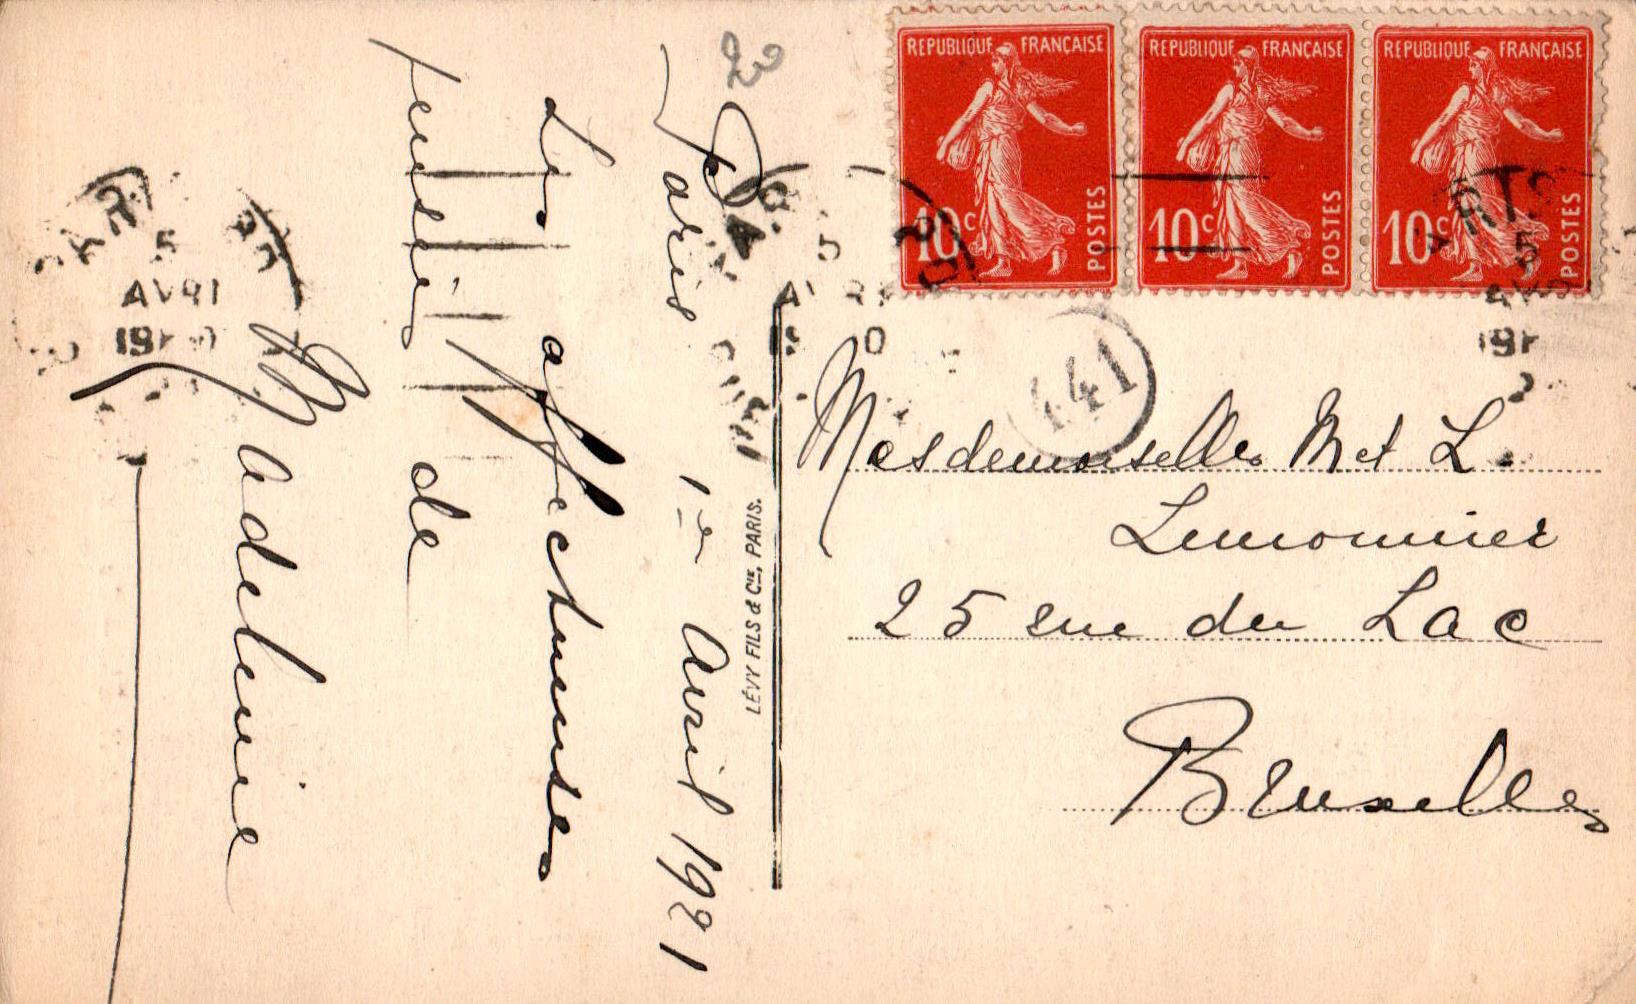 20
Paris 1er Avril 1921
Les affectueuses
pensées de
Madeleine
LÉVY FILS & Cie, PARIS.
REPUBLIQUE FRANÇAISE
10c POSTES
REPUBLIQUE FRANÇAISE
10c POSTES
REPUBLIQUE FRANÇAISE
10c POSTES
5
AVRI
441
Mesdemoiselles M et L.
Lemonnier
25 rue du Lac
Bruxelles